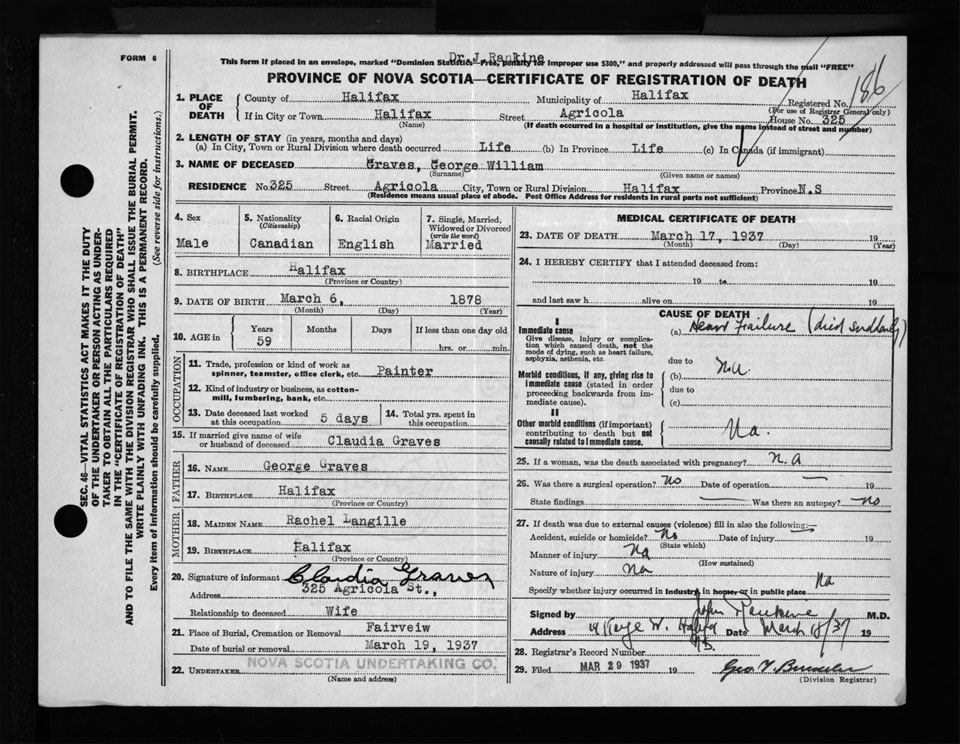 FORM 6
Dr J. Rankine
This form if placed in an envelope, marked "Dominion Statistics—Free, penalty for improper use $300," and properly addressed will pass through the mail "FREE"
PROVINCE OF NOVA SCOTIA—CERTIFICATE OF REGISTRATION OF DEATH
186
1. PLACE OF DEATH County of Halifax Municipality of Halifax Registered No.
(For use of Registrar General only)
If in City or Town Halifax Street Agricola House No. 325
(Name) (If death occurred in a hospital or institution, give the name instead of street and number)
2. LENGTH OF STAY (in years, months and days)
(a) In City, Town or Rural Division where death occurred Life (b) In Province Life (c) In Canada (if immigrant)
3. NAME OF DECEASED Graves, George William
(Surname) (Given name or names)
RESIDENCE No. 325 Street Agricola City, Town or Rural Division Halifax Province N.S
(Residence means usual place of abode. Post Office Address for residents in rural parts not sufficient)
4. Sex
Male
5. Nationality
(Citizenship)
Canadian
6. Racial Origin
English
7. Single, Married, Widowed or Divorced
(write the word)
Married
8. BIRTHPLACE Halifax
(Province or Country)
9. DATE OF BIRTH March 6, 1878
(Month) (Day) (Year)
10. AGE in Years Months Days If less than one day old
59 hrs. or min.
OCCUPATION
11. Trade, profession or kind of work as spinner, teamster, office clerk, etc. Painter
12. Kind of industry or business, as cotton-mill, lumbering, bank, etc.
13. Date deceased last worked at this occupation 5 days
14. Total yrs. spent in this occupation
15. If married give name of wife or husband of deceased Claudia Graves
FATHER
16. NAME George Graves
17. BIRTHPLACE Halifax
(Province or Country)
MOTHER
18. MAIDEN NAME Rachel Langille
19. BIRTHPLACE Halifax
(Province or Country)
20. Signature of informant Claudia Graves
Address 325 Agricola St.,
Relationship to deceased Wife
21. Place of Burial, Cremation or Removal Fairveiw
Date of burial or removal March 19, 1937
22. UNDERTAKER NOVA SCOTIA UNDERTAKING CO.
(Name and address)
MEDICAL CERTIFICATE OF DEATH
23. DATE OF DEATH March 17, 1937 19
(Month) (Day) (Year)
24. I HEREBY CERTIFY that I attended deceased from:
19 to 19
and last saw h alive on 19
CAUSE OF DEATH
I
Immediate cause
Give disease, injury or complication which caused death, not the mode of dying, such as heart failure, asphyxia, asthenia, etc.
(a) Heart Failure (died suddenly)
due to
Morbid conditions, if any, giving rise to immediate cause (stated in order proceeding backwards from immediate cause)
(b) na
due to
(c)
II
Other morbid conditions (if important) contributing to death but not causally related to immediate cause.
Na.
25. If a woman, was the death associated with pregnancy? n.a
26. Was there a surgical operation? No Date of operation —
State findings — Was there an autopsy? No
27. If death was due to external causes (violence) fill in also the following:—
Accident, suicide or homicide? No Date of injury 19
(State which)
Manner of injury Na
(How sustained)
Nature of injury Na
Specify whether injury occurred in Industry, in home, or in public place Na
Signed by John Rankine M.D.
Address W. Halifax N.S. Date March 18/37 19
28. Registrar's Record Number
29. Filed MAR 29 1937 19
(Division Registrar)
SEC. 46—VITAL STATISTICS ACT MAKES IT THE DUTY
OF THE UNDERTAKER OR PERSON ACTING AS UNDER-
TAKER TO OBTAIN ALL THE PARTICULARS REQUIRED
IN THE "CERTIFICATE OF REGISTRATION OF DEATH"
AND TO FILE THE SAME WITH THE DIVISION REGISTRAR WHO SHALL ISSUE THE BURIAL PERMIT.
WRITE PLAINLY WITH UNFADING INK. THIS IS A PERMANENT RECORD.
Every item of information should be carefully supplied. (See reverse side for instructions.)